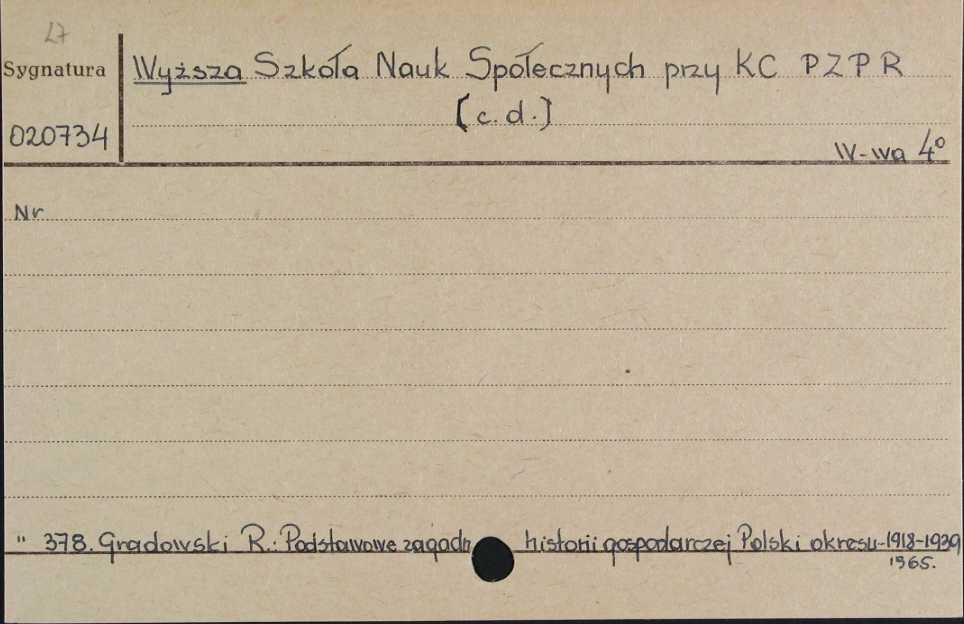 47
Sygnatura
Wyższa Szkoła Nauk Społecznych przy KC PZPR
[c.d.]
020734
W-wa 4°
Nr
" 378. Gradowski R.: Podstawowe zagadn historii gospodarczej Polski okresu-1918-1939
1965.